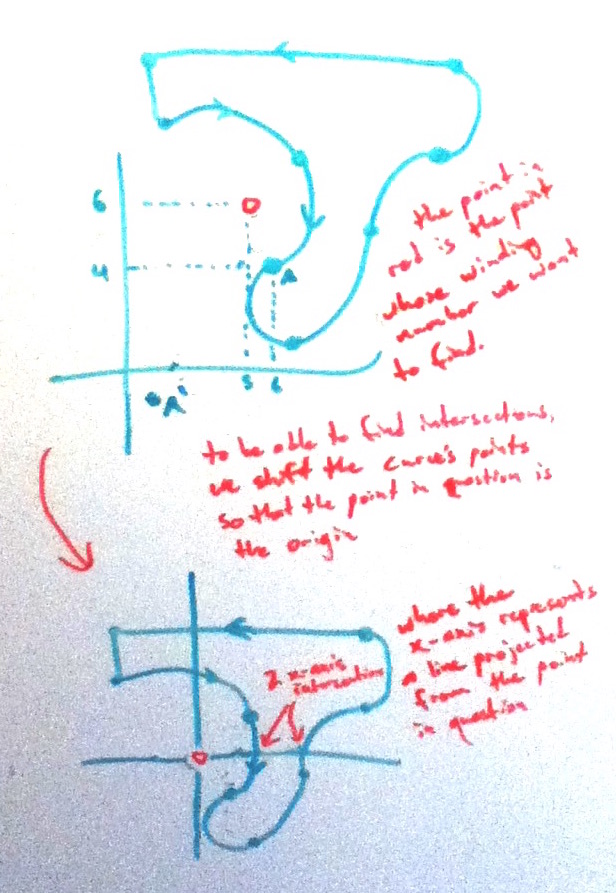 6
4
A
5
6
A'
the point in
red is the point
whose winding
number we want
to find.
to be able to find intersections,
we shift the curve's points
so that the point in question is
the origin
2 x-axis
intersections
where the
x-axis represents
a line projected
from the point
in question